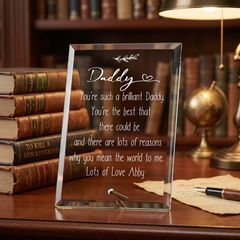 Daddy
You're such a brilliant Daddy.
You're the best that
there could be
and there are lots of reasons
why you mean the world to me.
Lots of Love Abby
TO KILL A
MOCKINGBIRD